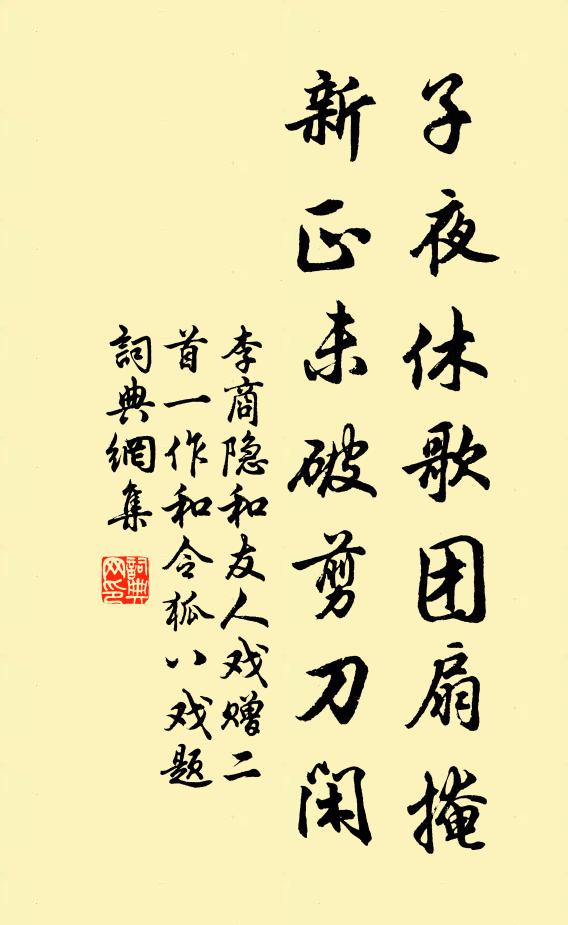 子夜休歌团扇掩
新正未破剪刀闲
李商隐和友人戏赠二
首一作和令狐八戏题
詞典網集
詞典
网印